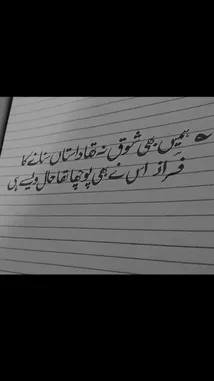 ہمیں بھی شوق نہ تھا داستاں سنانے کا
فراز اس نے بھی پوچھا تھا حال ویسے ہی